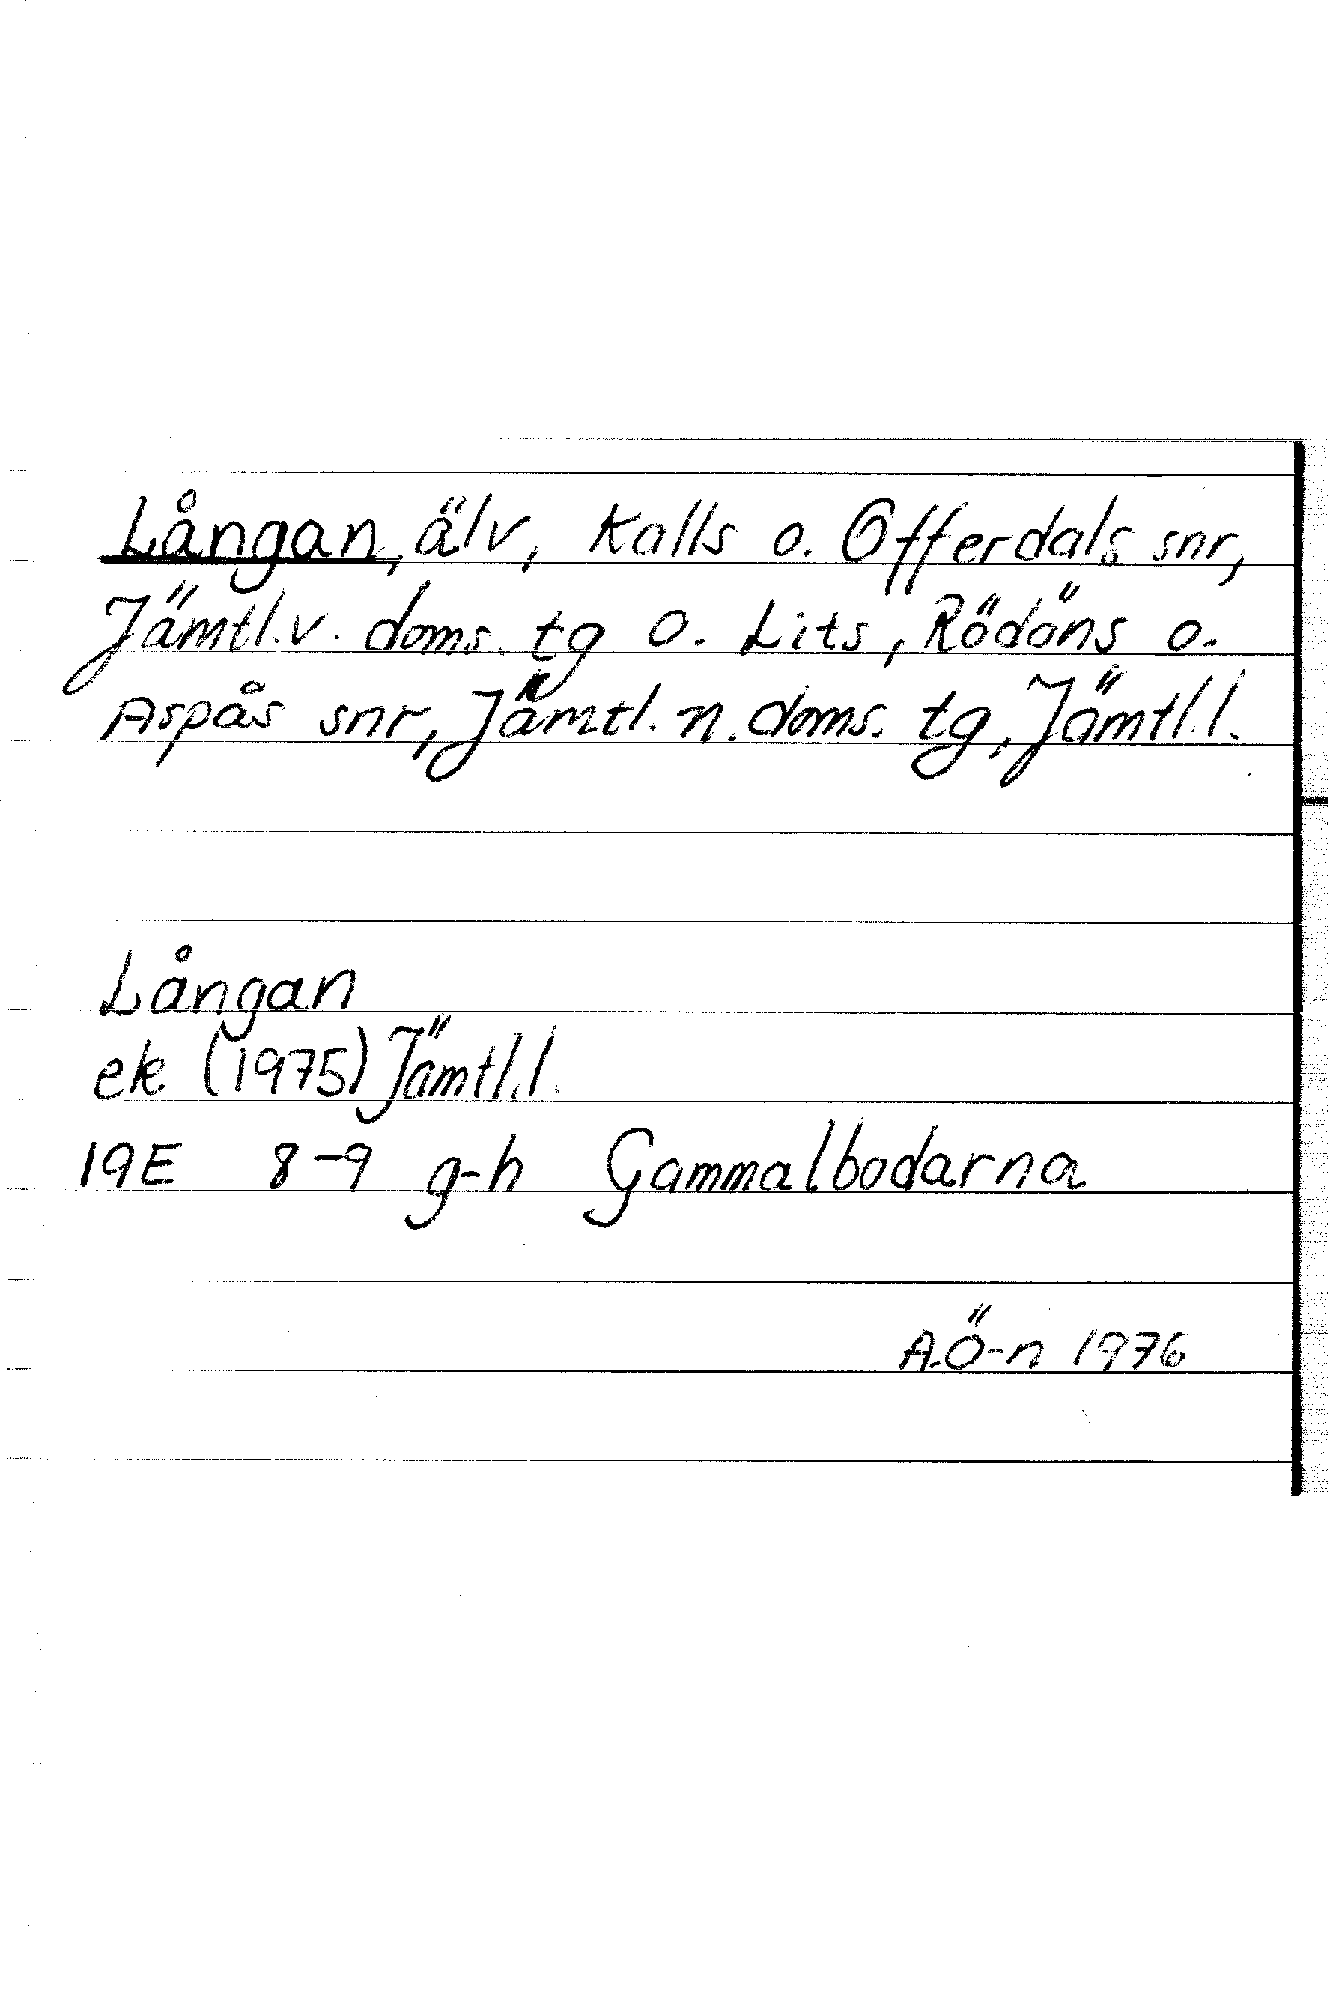 Långan, älv, Kalls o. Offerdals snr,
Jämtl.v. doms. tg o. Lits, Rödöns o.
Aspås snr, Jämtl. n. doms. tg, Jämtl.l.
Långan
ek (1975) Jämtl.l.
19E 8-9 g-h Gammalbodarna
A.Ö-n 1976